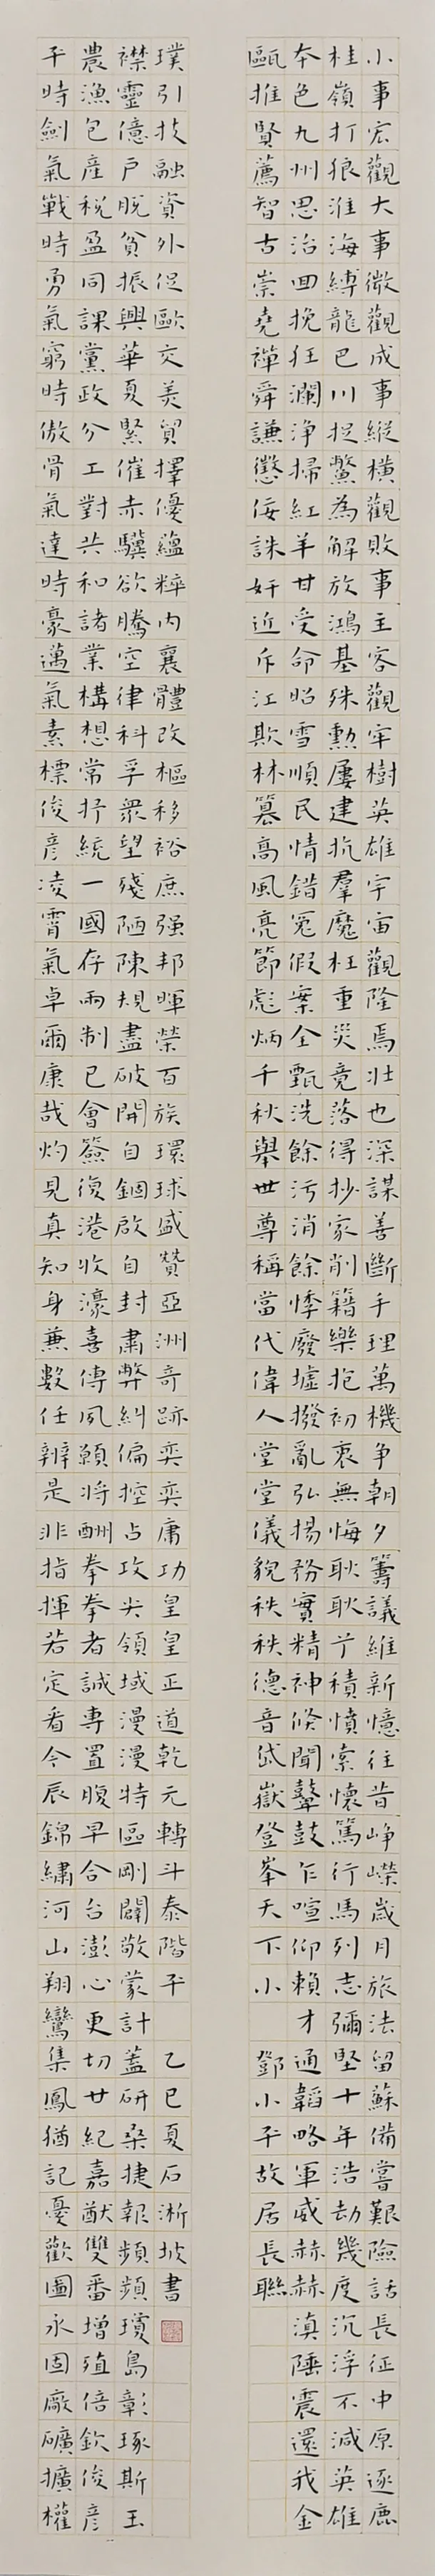 小事宏觀大事微觀成事縱橫觀敗事主客觀牢樹英雄宇宙觀隆焉壯也深謀善斷手理萬機爭朝夕籌議維新憶往昔崢嶸歲月旅法留蘇備嘗艱險話長征中原逐鹿
桂嶺打狼淮海縛龍巴川捉鱉為解放鴻基殊勳屢建抗羣魔枉重災竟落得抄家削籍樂抱初衷無悔耿耿亍積憤索懷篤行馬列志彌堅十年浩劫幾度沉浮不減英雄
本色九州思治回挽狂瀾淨掃紅羊甘受命昭雪順民情錯冤假案全甄洗餘污消餘悸廢墟撥亂弘揚務實精神倏聞鼙鼓乍喧仰賴才通韜略軍威赫赫滇陲震還我金
甌推賢薦智古崇堯禪舜謙懲佞誅奸近斥江欺林篡高風亮節彪炳千秋舉世尊稱當代偉人堂堂儀貌秩秩德音岱嶽登峯天下小
鄧小平故居長聯
平時劍氣戰時勇氣窮時傲骨氣達時豪邁氣素標俊彥凌霄氣卓爾康哉灼見真知身兼數任辨是非指揮若定看今辰錦繡河山翔鸞集鳳猶記憂歡圖永固廠礦擴權
農漁包產稅盈同課黨政分工對共和諸業構想常抒統一國存兩制已會簽復港收濠喜傳夙願將酬拳拳者誠專置腹早合台澎心更切廿紀嘉猷雙番增殖倍欽俊彥
襟靈億戶脫貧振興華夏緊催赤驥欲騰空律科孚眾望殘陋陳規盡破開自錮啟自封肅弊糾偏控占攻尖領域漫漫特區剛闢敞蒙計蓋研桑捷報頻頻瓊島彰琢斯玉
璞引技融資外促歐交美貿擇優蘊粹內襄體改樞移裕庶强邦暉榮百族環球盛贊亞洲奇跡奕奕庸功皇皇正道乾元轉斗泰階平
乙巳夏石淅坡書